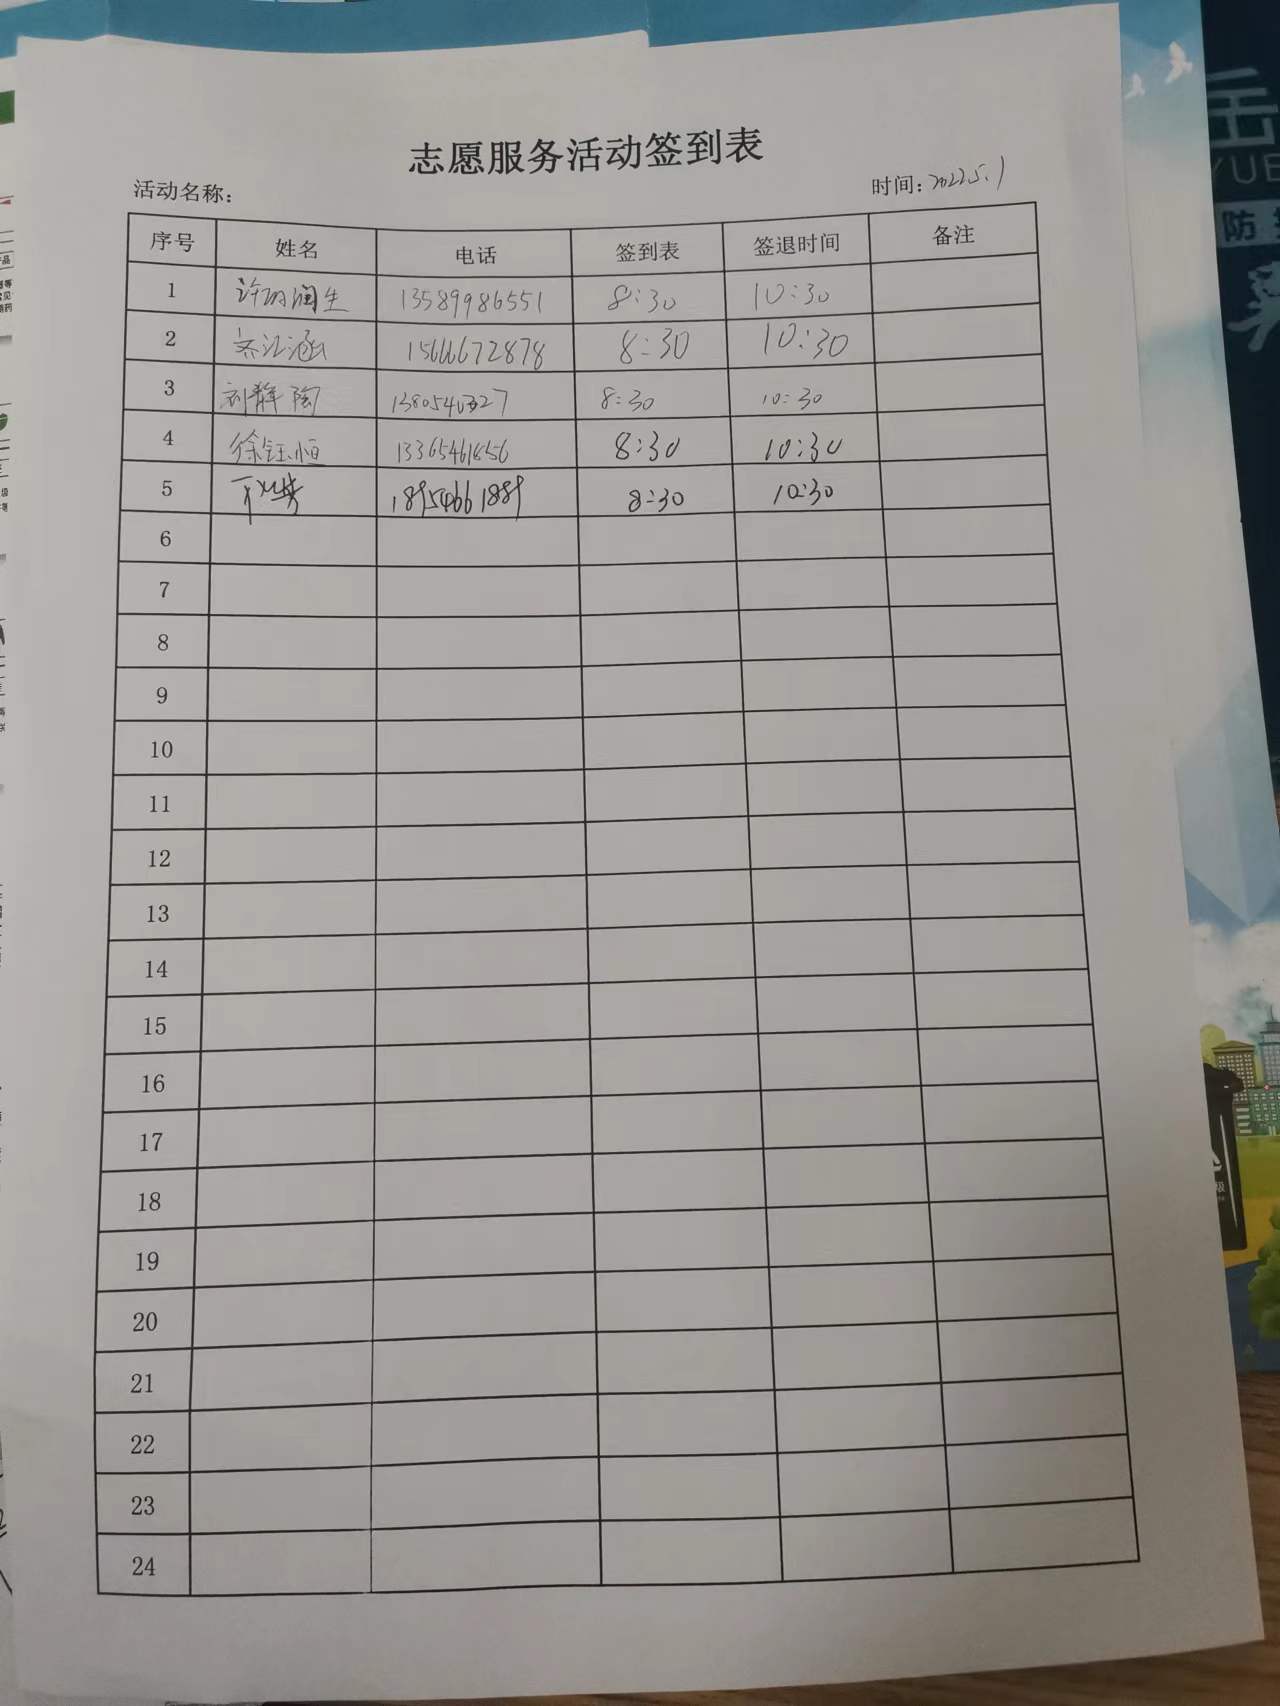 志愿服务活动签到表
活动名称： 时间：2022.5.1
序号 姓名 电话 签到表 签退时间 备注
1 13589986551 8:30 10:30
2 齐汇涵 15666672878 8:30 10:30
3 刘静陶 8:30 10:30
4 徐钰恒 8:30 10:30
5 18954661889 8:30 10:30
6
7
8
9
10
11
12
13
14
15
16
17
18
19
20
21
22
23
24
防